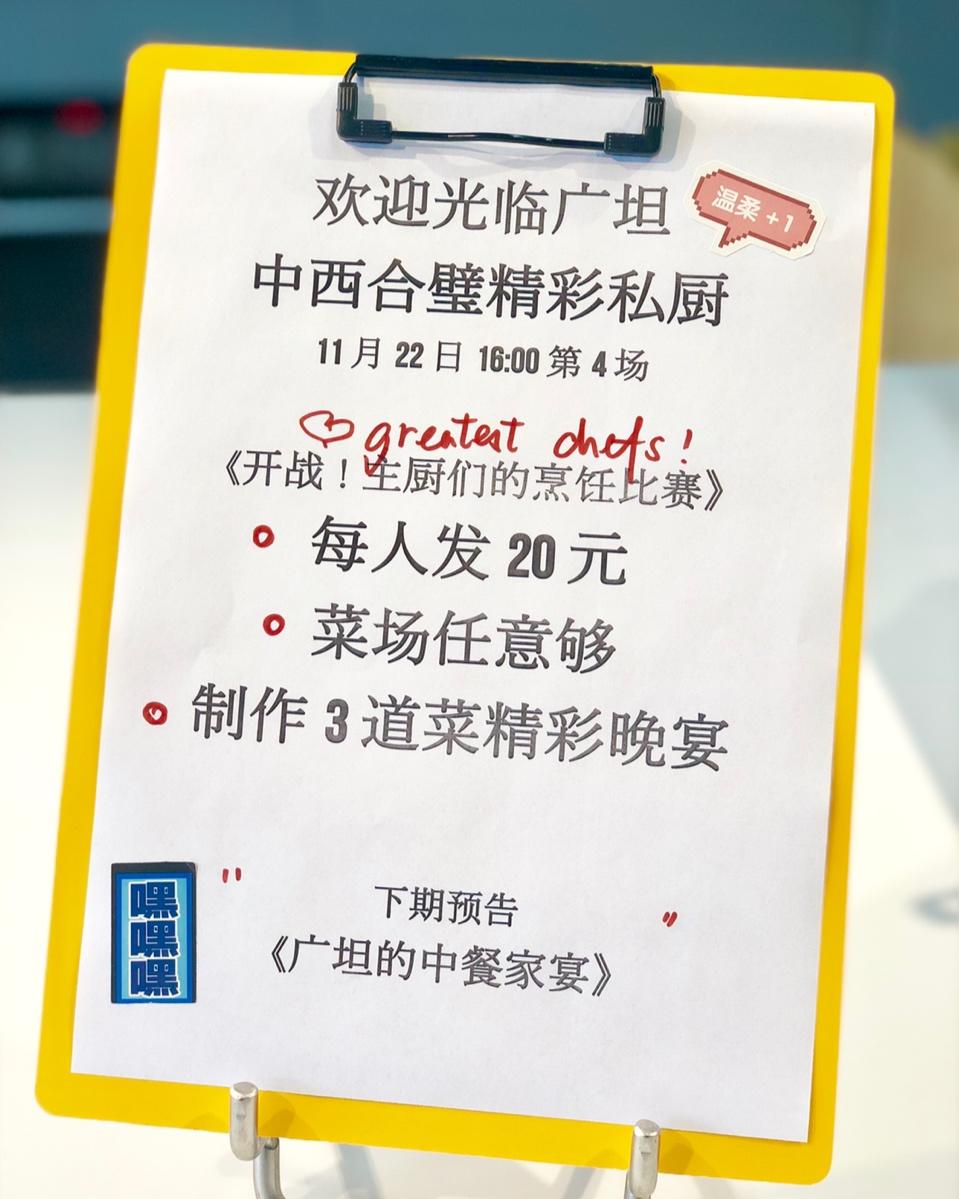 欢迎光临广坦
温柔 +1
中西合璧精彩私厨
11 月 22 日 16:00 第 4 场
greatest chefs!
《开战！主厨们的烹饪比赛》
每人发 20 元
菜场任意够
制作 3 道菜精彩晚宴
嘿
嘿
嘿
" 下期预告 "
《广坦的中餐家宴》